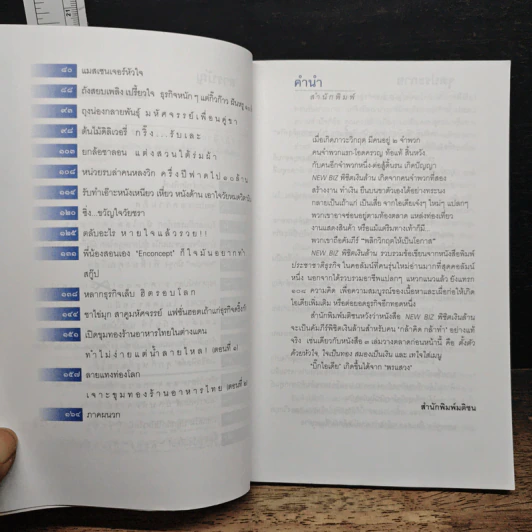 ๘๐ แมสเซนเจอร์หัวใจ
๘๘ ถังสยบเพลิง เปรี้ยวใจ ธุรกิจหนัก ๆ แต่กิ๊วก๊าว
๙๓ ถุงน่องกลายพันธุ์ มหัศจรรย์เพื่อนคู่ขา
๙๘ ต้นไม้ดิลิเวอรี่ กริ๊ง...รับเละ
๑๐๓ ยกล้อซาลอน แต่งสวนได้ร่มม้า
๑๐๘ หน่วยรบล่าคนหลงวิก ครึ่งปีฟาดไป ๑๐ ล้าน
๑๑๔ รับทำเอ๊าะหนังเหนียว เหี่ยว หนังด้าน
๑๒๐ ซิ่ง...ขวัญใจวัยชรา
๑๒๕ ตลับอะไร หายใจแล้วรวย!!
๑๓๑ พี่น้องสอนเอง "Enconcept" ก็ใจมันอยากทำ
สกู๊ป
๑๓๘ หลากธุรกิจเล็บ ฮิตรอบโลก
๑๔๔ ชาไข่มุก ลาดูมหัศจรรย์ แฟชั่นฮอตเถ้าแก่ธุรกิจ
๑๕๐ เปิดขุมทองร้านอาหารไทยในต่างแดน
ทำไม่ง่ายแต่น้ำลายไหล! (ตอนที่ ๑)
๑๕๗ ลายแทงท่องโลก
เจาะขุมทองร้านอาหารไทย (ตอนที่ ๒)
๑๖๔ ภาคผนวก
คำนำ
สำนักพิมพ์
เมื่อเกิดภาวะวิกฤต มีคนอยู่ ๒ จำพวก
คนจำพวกแรก-โอดครวญ ท้อแท้ สิ้นหวัง
กับคนอีกจำพวกหนึ่ง-ต่อสู้ดิ้นรน เกิดปัญญา
NEW BIZ พิชิตเงินล้าน เกิดจากคนจำพวกที่สอง
สร้างงาน ทำเงิน ยืนบนขาตัวเองได้อย่างทระนง
กลายเป็นเถ้าแก่ เป็นเสี่ย จากไอเดียเจ๋งๆ ใหม่ๆ แปลกๆ
พวกเขาอาจซ่อนอยู่ตามท้องตลาด แหล่งท่องเที่ยว
งานแสดงสินค้า หรือแม้แต่ริมทางเท้าก็มี
พวกเขาถือคัมภีร์ "พลิกวิกฤตให้เป็นโอกาส"
NEW BIZ พิชิตเงินล้าน รวบรวมข้อเขียนจากหนังสือพิมพ์
ประชาชาติธุรกิจ ในคอลัมน์ที่คนรุ่นใหม่อ่านมากที่สุดคอลัมน์
หนึ่ง นอกจากได้รวบรวมอาชีพแปลกๆ แหวกแนวแล้ว ยังแทรก
๑๐๘ ความคิด เพื่อความสมบูรณ์ของเนื้อหาและเผื่อก่อให้เกิด
ไอเดียเพิ่มเติม หรือต่อยอดธุรกิจอีกทอดหนึ่ง
สำนักพิมพ์มติชนหวังว่าหนังสือ NEW BIZ พิชิตเงินล้าน
จะเป็นคัมภีร์พิชิตเงินล้านสำหรับคน "กล้าคิด กล้าทำ" อย่างแท้
จริง เช่นเดียวกับหนังสือ ๓ เล่มวางตลาดก่อนหน้านี้ คือ ตั้งตัว
ด้วยหัวใจ, ใจเป็นทอง สมองเป็นเงิน และ เทใจใส่เมนู
"บิ๊กไอเดีย" เกิดขึ้นได้จาก "พรแสวง"
สำนักพิมพ์มติชน